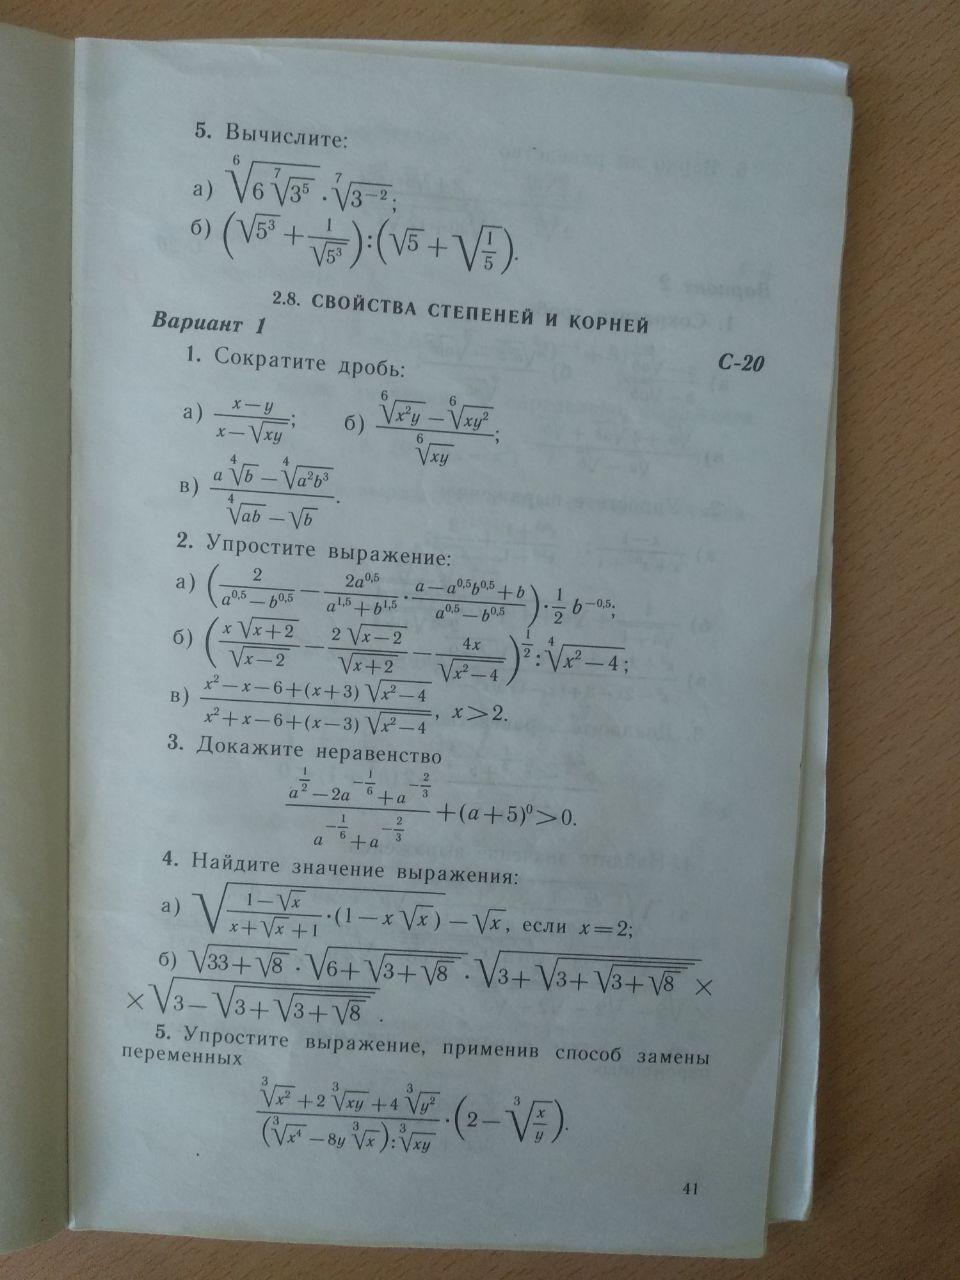 5. Вычислите:
а) $\sqrt[6]{6\sqrt[7]{3^5}} \cdot \sqrt[7]{3^{-2}}$;
б) $\left(\sqrt{5^3}+\frac{1}{\sqrt{5^3}}\right):\left(\sqrt{5}+\sqrt{\frac{1}{5}}\right)$.
2.8. СВОЙСТВА СТЕПЕНЕЙ И КОРНЕЙ
Вариант 1
С-20
1. Сократите дробь:
а) $\frac{x-y}{x-\sqrt{xy}}$; б) $\frac{\sqrt[6]{x^2y}-\sqrt[6]{xy^2}}{\sqrt[6]{xy}}$;
в) $\frac{a\sqrt[4]{b}-\sqrt[4]{a^2b^3}}{\sqrt[4]{ab}-\sqrt{b}}$.
2. Упростите выражение:
а) $\left(\frac{2}{a^{0,5}-b^{0,5}}-\frac{2a^{0,5}}{a^{1,5}+b^{1,5}}\cdot\frac{a-a^{0,5}b^{0,5}+b}{a^{0,5}-b^{0,5}}\right)\cdot\frac{1}{2}b^{-0,5}$;
б) $\left(\frac{x\sqrt{x+2}}{\sqrt{x-2}}-\frac{2\sqrt{x-2}}{\sqrt{x+2}}-\frac{4x}{\sqrt{x^2-4}}\right)^{\frac{1}{2}}:\sqrt[4]{x^2-4}$;
в) $\frac{x^2-x-6+(x+3)\sqrt{x^2-4}}{x^2+x-6+(x-3)\sqrt{x^2-4}}$, $x>2$.
3. Докажите неравенство
$\frac{a^{\frac{1}{2}}-2a^{-\frac{1}{6}}+a^{-\frac{2}{3}}}{a^{-\frac{1}{6}}+a^{-\frac{2}{3}}}+(a+5)^0>0$.
4. Найдите значение выражения:
а) $\sqrt{\frac{1-\sqrt{x}}{x+\sqrt{x}+1}\cdot(1-x\sqrt{x})}-\sqrt{x}$, если $x=2$;
б) $\sqrt{33+\sqrt{8}}\cdot\sqrt{6+\sqrt{3+\sqrt{8}}}\cdot\sqrt{3+\sqrt{3+\sqrt{3+\sqrt{8}}}}\times$
$\times\sqrt{3-\sqrt{3+\sqrt{3+\sqrt{8}}}}$.
5. Упростите выражение, применив способ замены
переменных
$\frac{\sqrt[3]{x^2}+2\sqrt[3]{xy}+4\sqrt[3]{y^2}}{\left(\sqrt[3]{x^4}-8y\sqrt[3]{x}\right):\sqrt[3]{xy}}\cdot\left(2-\sqrt[3]{\frac{x}{y}}\right)$.
41